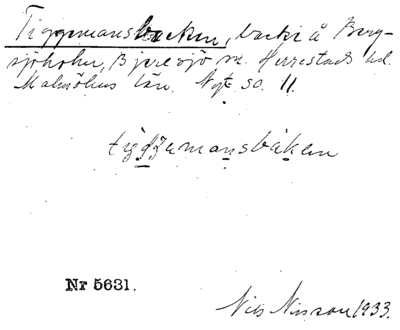 Tiggemansbacken, backe å Berg-
sjöholm, Bjeresjö sn. Herrestads hd.
Malmöhus län. Nyt so. 11.
tigʒemansbakan
Nr 5631.
Nils Nilsson 1933.